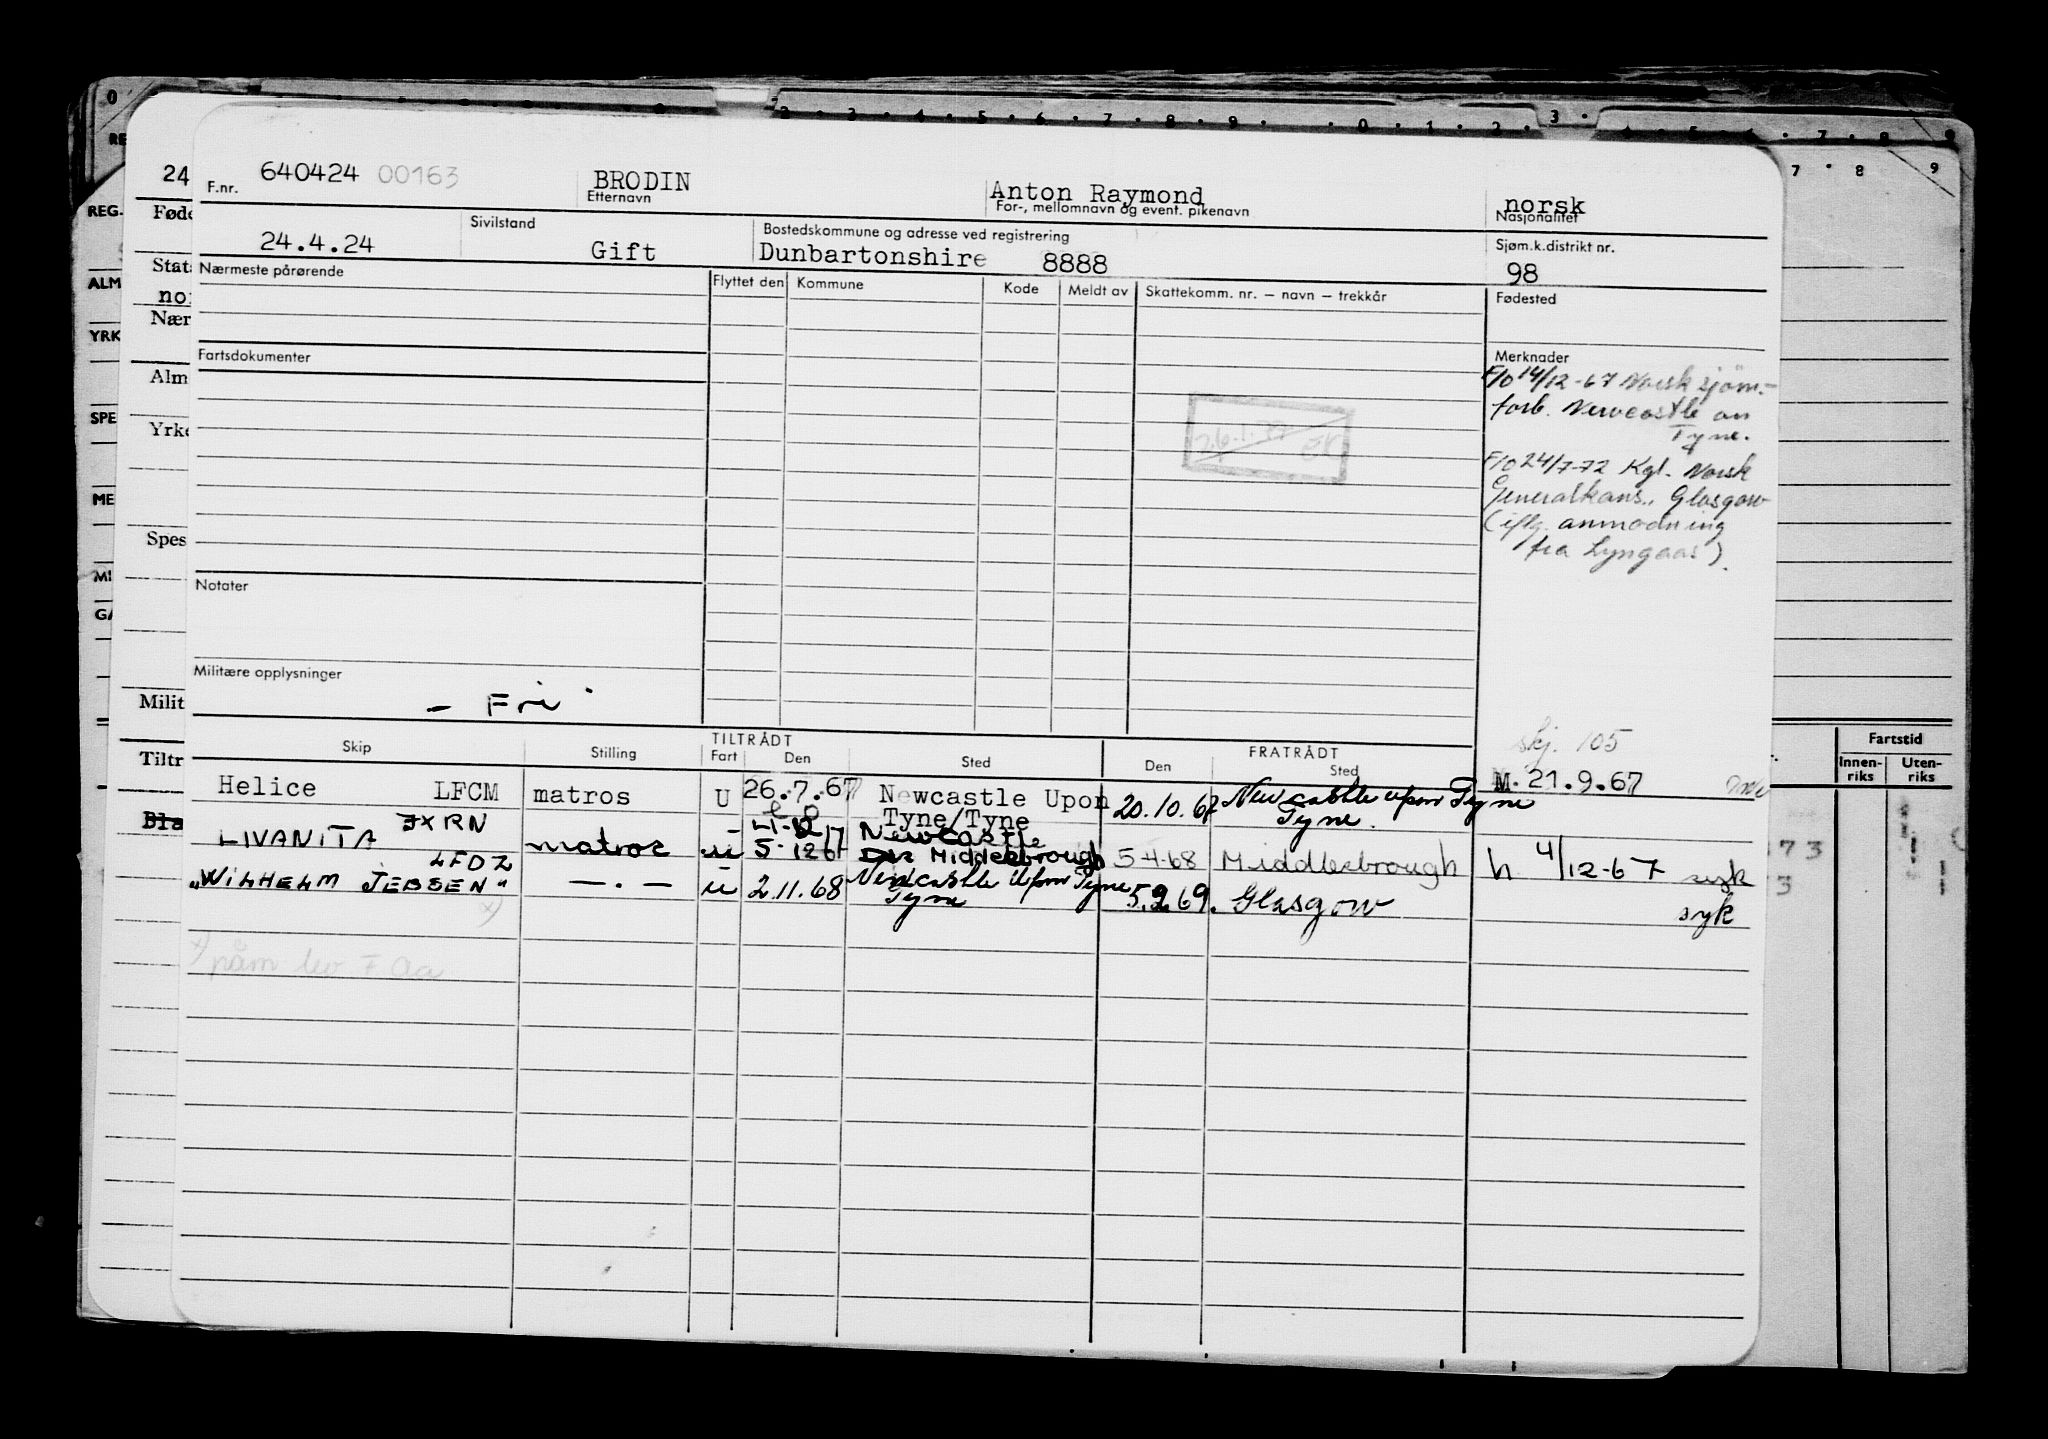 640424 00163 BRODIN Anton Raymond norsk
F.nr. Etternavn For-, mellomnavn og event. pikenavn Nasjonalitet
24.4.24 Sivilstand Gift Bostedskommune og adresse ved registrering Sjøm.k.distrikt nr.
Dunbartonshire 8888 98
Nærmeste pårørende Flyttet den Kommune Kode Meldt av Skattekomm. nr. — navn — trekkår Fødested
Fartsdokumenter Merknader
F/O 14/12-67 Norsk sjöm.-
forb. Newcastle on
Tyne.
F/O 24/7-72 Kgl. Norsk
Generalkons., Glasgow
(iflg. anmodning
fra Lyngaas).
Notater
Militære opplysninger
- Fri
skj. 105
TILTRÅDT FRATRÅDT
Skip Stilling Fart Den Sted Den Sted
M. 21.9.67
Helice LFCM matros U 26.7.67 Newcastle Upon Tyne/Tyne 20.10.67 Newcastle upon Tyne Tyne.
LIVANITA JXRN matros u 5-12 67 Newcastle Middlesbrough 5-4-68 Middlesbrough h 4/12-67 syk
"WILHELM JEBSEN" LFDZ — . — u 2.11.68 Newcastle Upon Tyne Tyne 5.2.69. Glasgow syk
x)
x) påm lev F Aa
24
Føde
Stats
nor
Nær
Alm
Yrke
Spes
Milit
Tiltr
Bla
REG.
ALM
YRK
SPE
ME
MI
GA
Fartstid
Innen-
riks
Uten-
riks
73
3